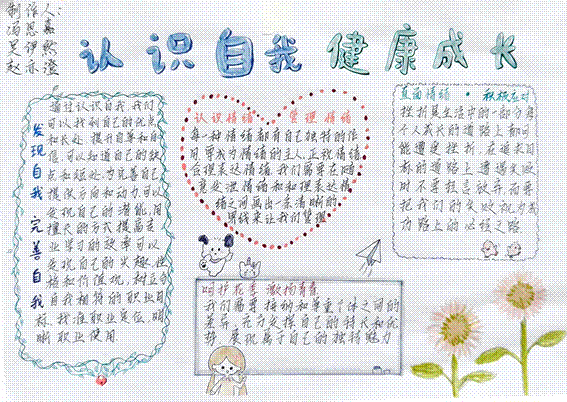 制作人:
冯恩嘉
吴伊然
赵亦澄
认识自我 健康成长
发现自我 完善自我
通过认识自我,我们
可以找到自己的优点
和长处,提升自尊和自
信,可以知道自己的缺
点和短处,为完善自己
提供方向和动力可以
发现自己的潜能,用
擅长的方式提高走
业学习的效率可以
发现自己的兴趣,性
格和价值观,树立与
自我相符的职业目
标,找准职业定位,明
晰职业使用.
认识情绪 管理情绪
每一种情绪都有自己独特的作
用,要成为情绪的主人,正视情绪,
合理表达情绪,我们需要在随
意处理情绪和和理表达情
绪之间画出一条清晰的
界线来让我们管理
直面情绪 · 积极应对
挫折是生活中的一部分每
个人成长的道路上都可
能遭受挫折,在追求目
标的道路上遭遇失败
时不要轻言放弃而要
把我们的失败视为成
功路上的必经之路
呵护花季 激扬青春
我们需要接纳和尊重个体之间的
差异,充分发挥自己的特长和优
势,展现属于自己的独特魅力